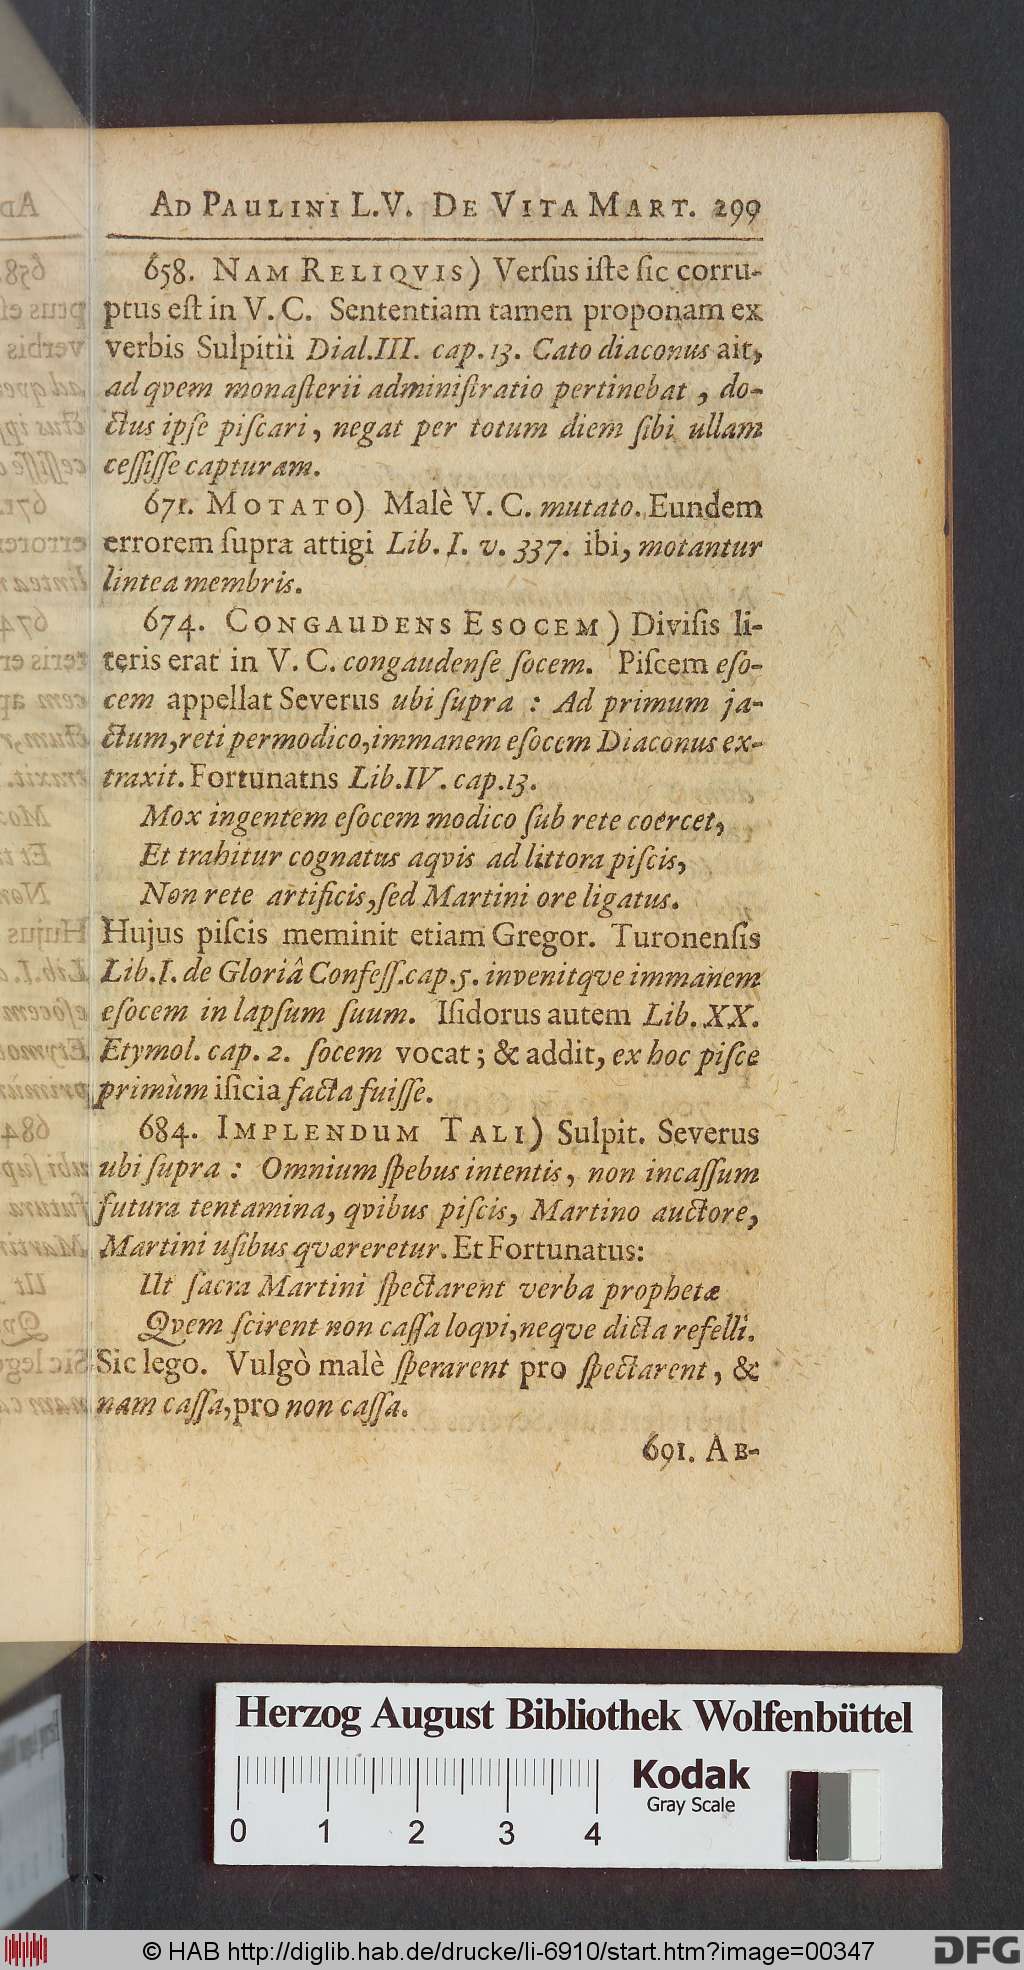 AD PAULINI L.V. DE VITA MART. 299
658. NAM RELIQVIS) Versus iste sic corru-
ptus est in V. C. Sententiam tamen proponam ex
verbis Sulpitii Dial.III. cap.13. Cato diaconus ait,
ad qvem monasterii administratio pertinebat, do-
ctus ipse piscari, negat per totum diem sibi ullam
cessisse capturam.
671. MOTATO) Malè V. C. mutato. Eundem
errorem supra attigi Lib. I. v. 337. ibi, motantur
lintea membris.
674. CONGAUDENS ESOCEM) Divisis li-
teris erat in V. C. congaudense socem. Piscem eso-
cem appellat Severus ubi supra: Ad primum ja-
ctum, reti permodico, immanem esocem Diaconus ex-
traxit. Fortunatns Lib.IV. cap.13.
Mox ingentem esocem modico sub rete coërcet,
Et trahitur cognatus aqvis ad littora piscis,
Non rete artificis, sed Martini ore ligatus.
Hujus piscis meminit etiam Gregor. Turonensis
Lib.I. de Gloriâ Confess.cap.5. invenitqve immanem
esocem in lapsum suum. Isidorus autem Lib. XX.
Etymol. cap. 2. socem vocat; & addit, ex hoc pisce
primùm isicia facta fuisse.
684. IMPLENDUM TALI) Sulpit. Severus
ubi supra: Omnium spebus intentis, non incassum
futura tentamina, qvibus piscis, Martino auctore,
Martini usibus qværeretur. Et Fortunatus:
Ut sacra Martini spectarent verba prophetæ
Qvem scirent non cassa loqvi, neqve dicta refelli.
Sic lego. Vulgò malè sperarent pro spectarent, &
nam cassa, pro non cassa.
691. AB-
Herzog August Bibliothek Wolfenbüttel
Kodak
Gray Scale
0 1 2 3 4
© HAB http://diglib.hab.de/drucke/li-6910/start.htm?image=00347
DFG